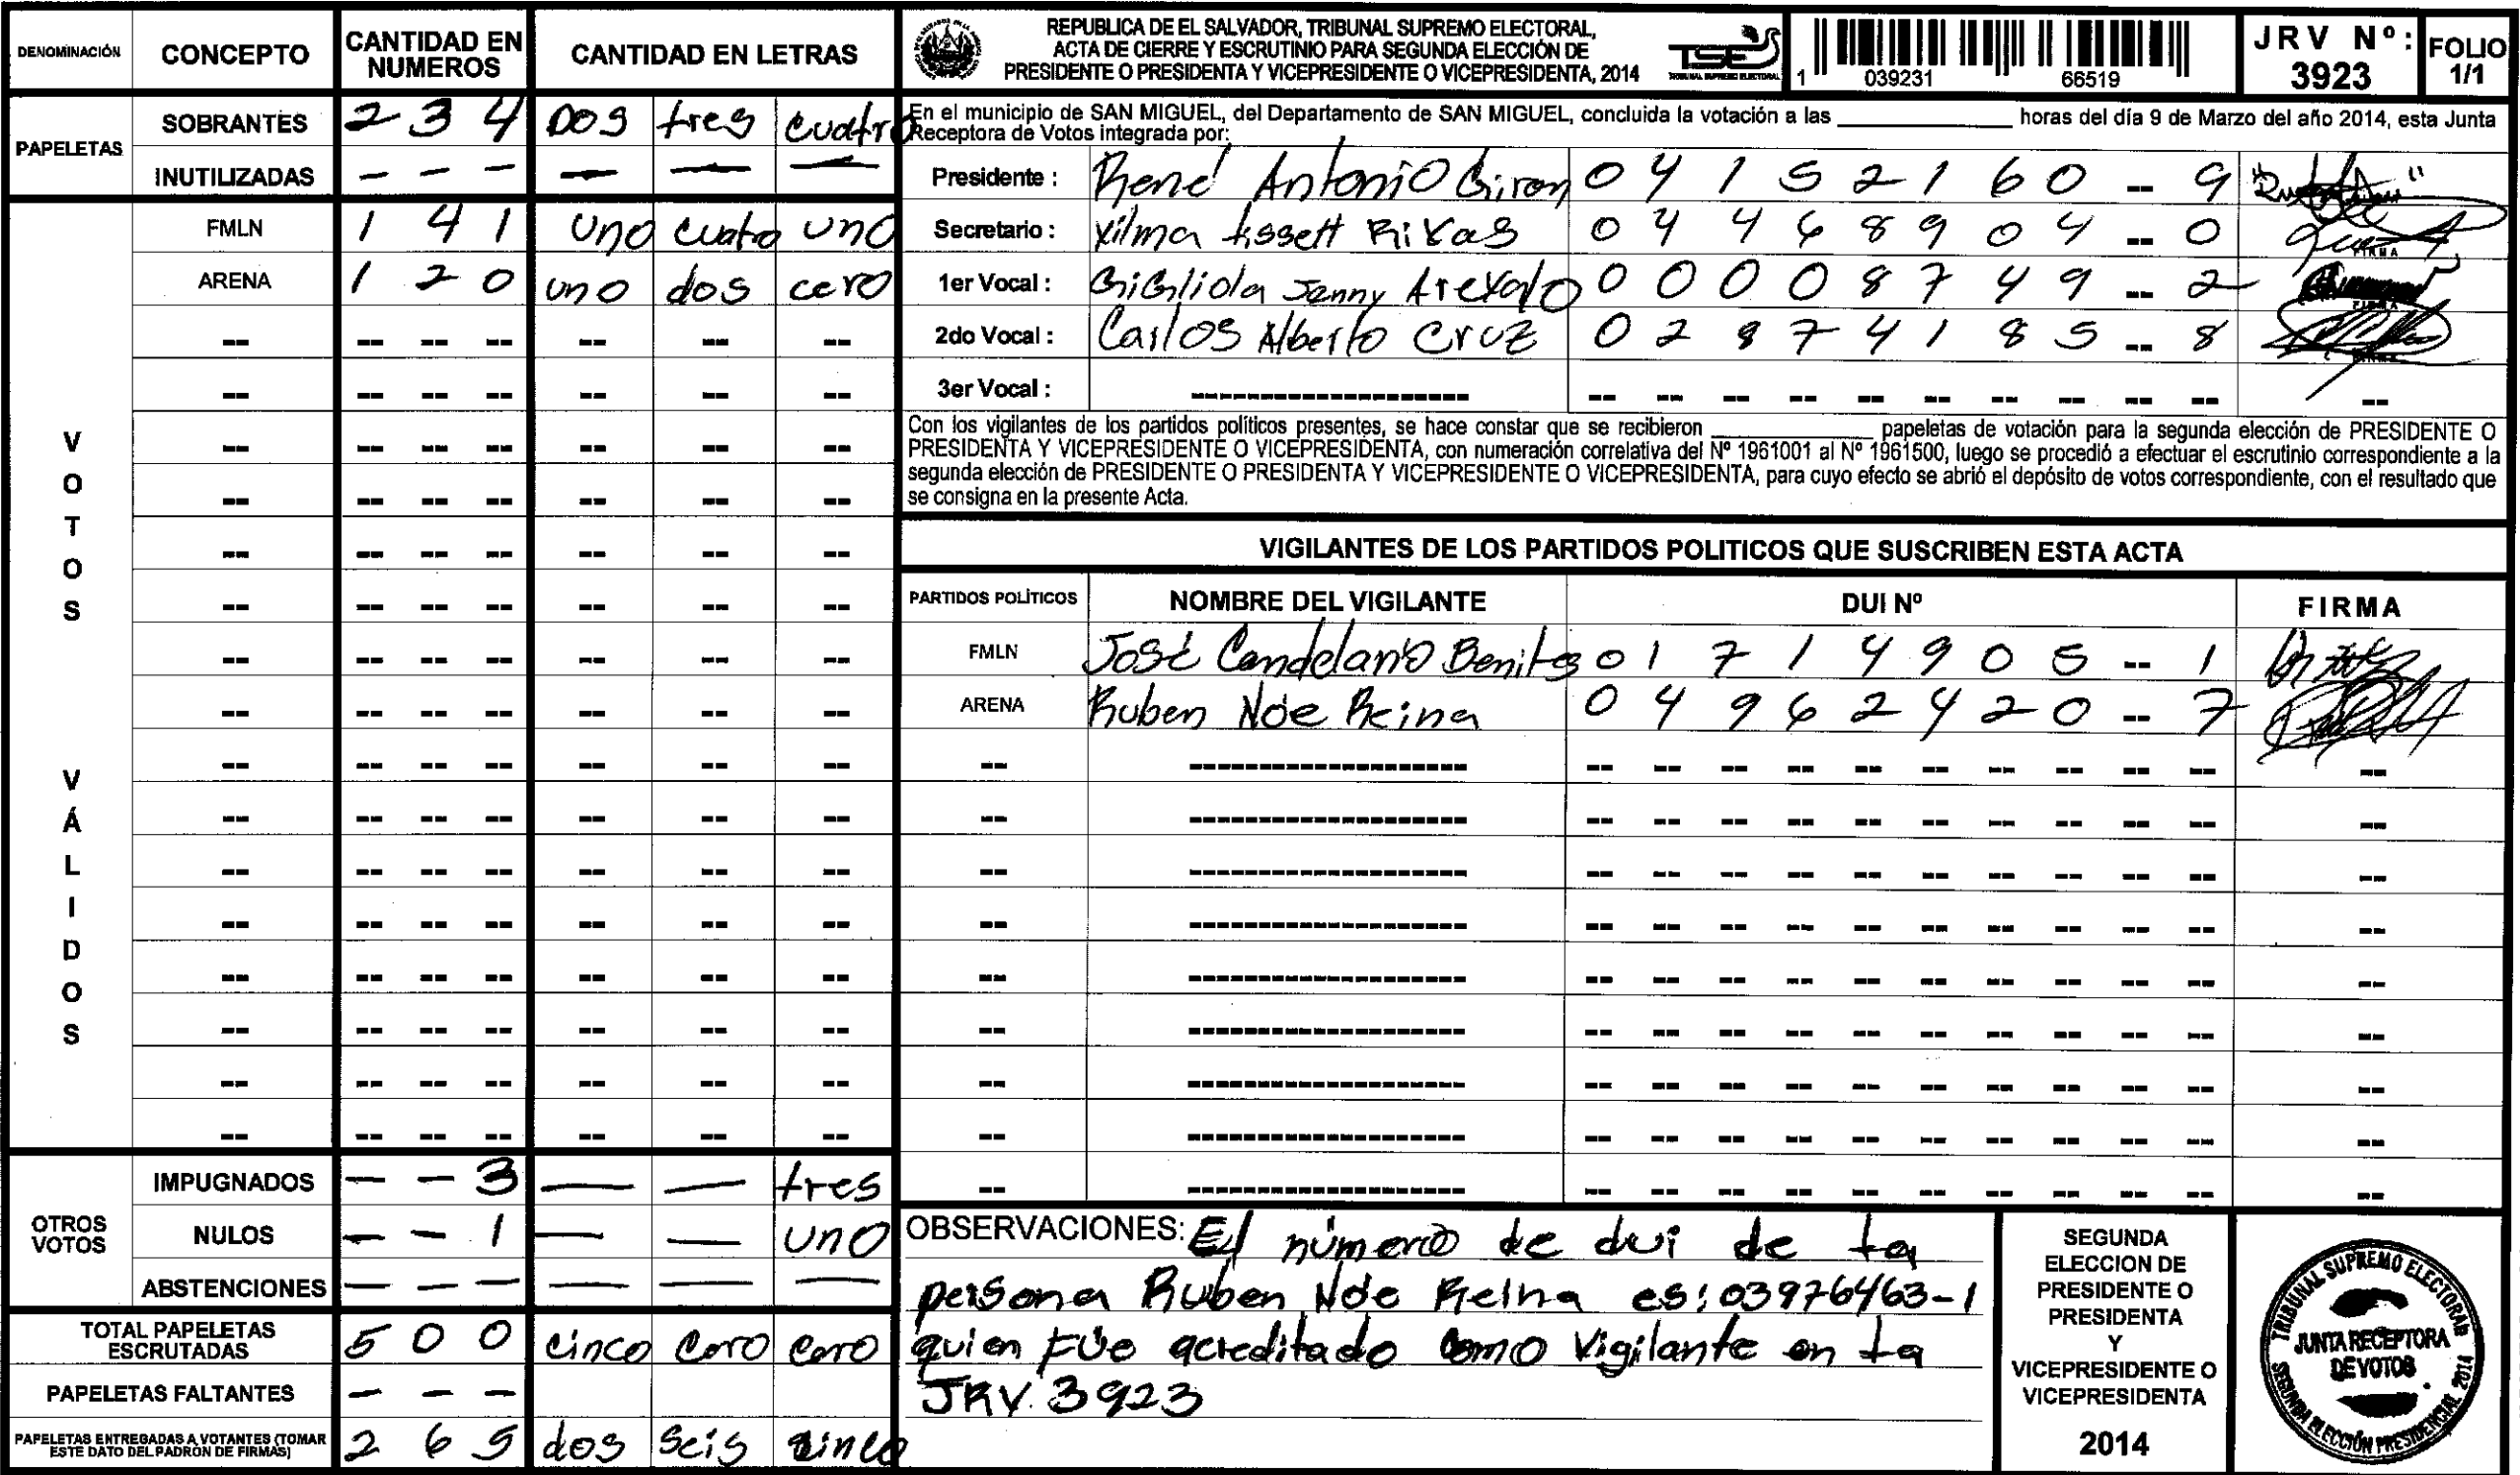 DENOMINACIÓN CONCEPTO CANTIDAD EN NUMEROS CANTIDAD EN LETRAS
PAPELETAS
SOBRANTES 2 3 4 DOS tres cuatro
INUTILIZADAS - - - - - -
VOTOS VÁLIDOS
FMLN 1 4 1 uno cuatro uno
ARENA 1 2 0 uno dos cero
OTROS VOTOS
IMPUGNADOS - - 3 - - tres
NULOS - - 1 - - uno
ABSTENCIONES - - - - - -
TOTAL PAPELETAS ESCRUTADAS 5 0 0 cinco cero cero
PAPELETAS FALTANTES - - -
PAPELETAS ENTREGADAS A VOTANTES (TOMAR ESTE DATO DEL PADRÓN DE FIRMAS) 2 6 5 dos seis cinco
REPUBLICA DE EL SALVADOR, TRIBUNAL SUPREMO ELECTORAL,
ACTA DE CIERRE Y ESCRUTINIO PARA SEGUNDA ELECCIÓN DE
PRESIDENTE O PRESIDENTA Y VICEPRESIDENTE O VICEPRESIDENTA, 2014
TSE
TRIBUNAL SUPREMO ELECTORAL
1 039231 66519
JRV Nº: 3923
FOLIO 1/1
En el municipio de SAN MIGUEL, del Departamento de SAN MIGUEL, concluida la votación a las ____________ horas del día 9 de Marzo del año 2014, esta Junta
Receptora de Votos integrada por:
Presidente : René Antonio Giron 0 4 1 5 2 1 6 0 -- 9
Secretario : Vilma Lissett Rivas 0 4 4 6 8 9 0 4 -- 0
1er Vocal : GiGliola Jenny Arevalo 0 0 0 0 8 7 4 9 -- 2
2do Vocal : Carlos Alberto Cruz 0 2 8 7 4 1 8 5 -- 8
3er Vocal :
Con los vigilantes de los partidos políticos presentes, se hace constar que se recibieron ____________ papeletas de votación para la segunda elección de PRESIDENTE O
PRESIDENTA Y VICEPRESIDENTE O VICEPRESIDENTA, con numeración correlativa del Nº 1961001 al Nº 1961500, luego se procedió a efectuar el escrutinio correspondiente a la
segunda elección de PRESIDENTE O PRESIDENTA Y VICEPRESIDENTE O VICEPRESIDENTA, para cuyo efecto se abrió el depósito de votos correspondiente, con el resultado que
se consigna en la presente Acta.
VIGILANTES DE LOS PARTIDOS POLITICOS QUE SUSCRIBEN ESTA ACTA
PARTIDOS POLÍTICOS NOMBRE DEL VIGILANTE DUI Nº FIRMA
FMLN José Candelario Benites 0 1 7 1 4 9 0 5 -- 1
ARENA Ruben Nóe Reina 0 4 9 6 2 4 2 0 -- 7
OBSERVACIONES: El número de dui de la
persona Ruben Nóe Reina es: 03976463-1
quien Fúe acreditado como Vigilante en la
JRV. 3923
SEGUNDA
ELECCION DE
PRESIDENTE O
PRESIDENTA
Y
VICEPRESIDENTE O
VICEPRESIDENTA
2014
TRIBUNAL SUPREMO ELECTORAL
JUNTA RECEPTORA
DE VOTOS
SEGUNDA ELECCIÓN PRESIDENCIAL 2014